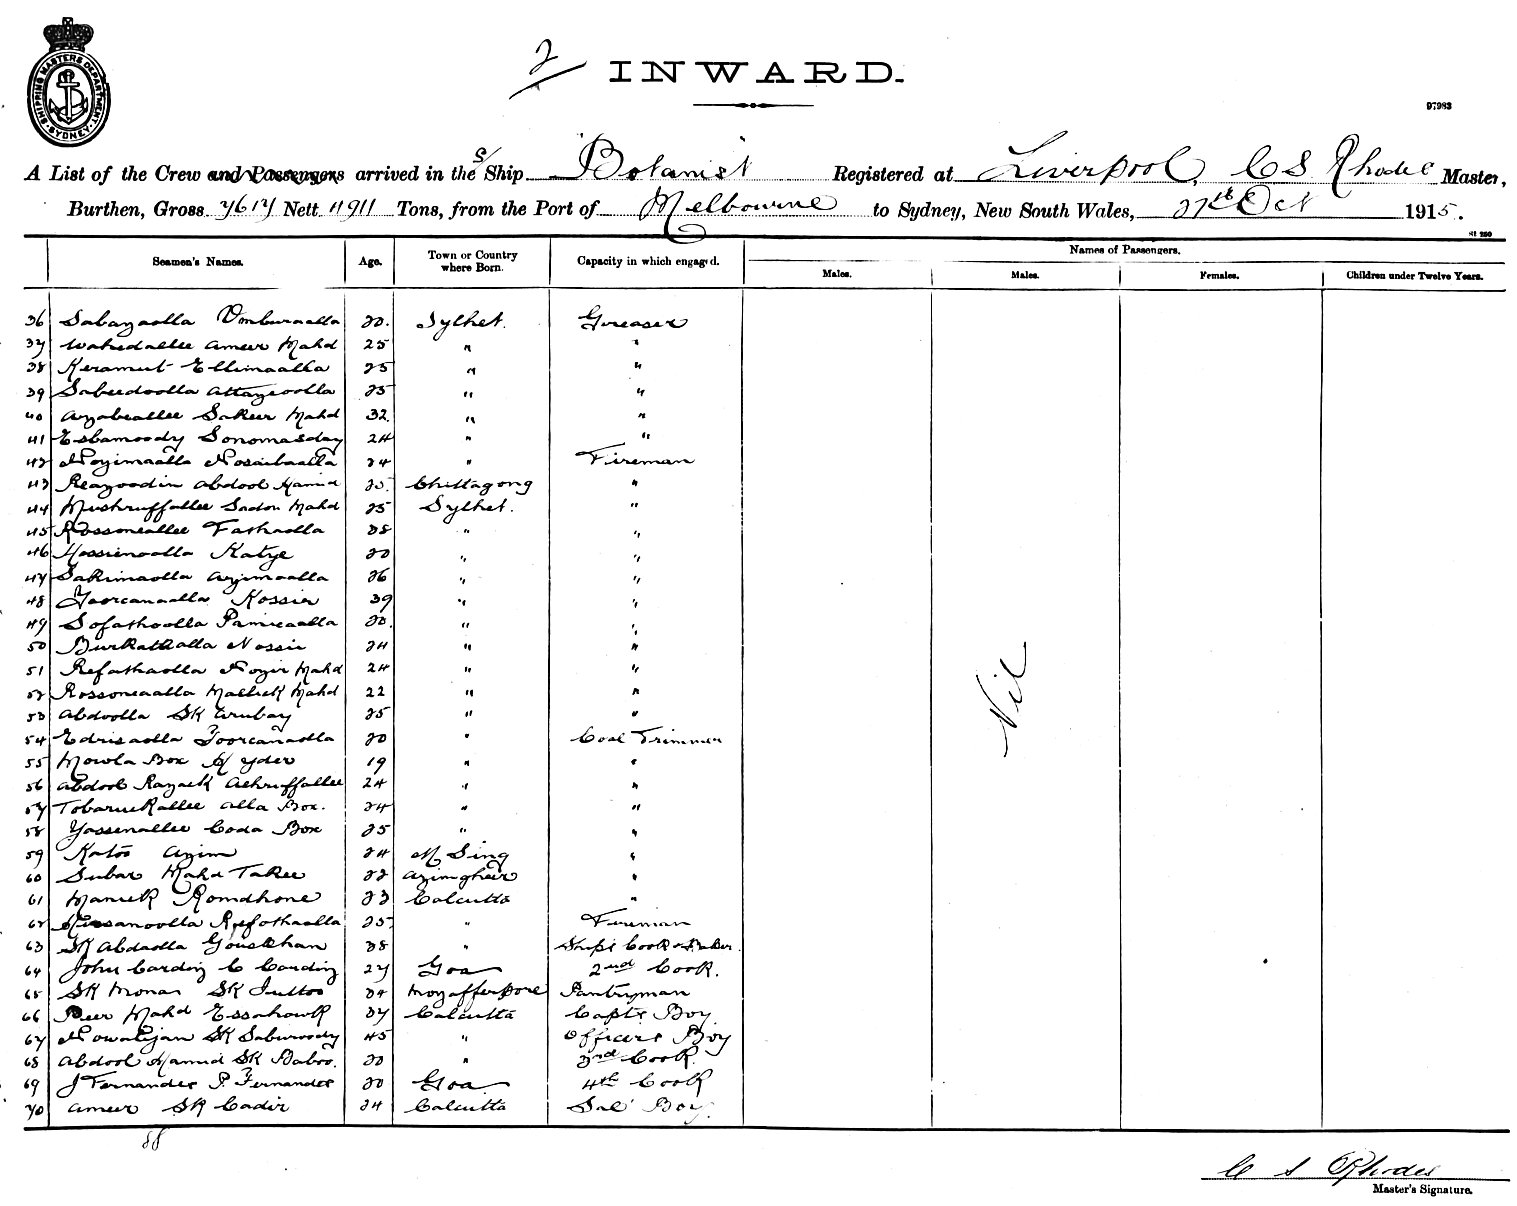 SHIPPING MASTERS DEPARTMENT SYDNEY
2/ INWARD.
97983
A List of the Crew and Passengers arrived in the S/ Ship "Botanist" Registered at Liverpool, C S Rhodes Master,
Burthen, Gross 7617 Nett 4911 Tons, from the Port of Melbourne to Sydney, New South Wales, 27th Oct 1915.
Seamen's Names. Age. Town or Country where Born. Capacity in which engaged. Names of Passengers.
Males. Males. Females. Children under Twelve Years.
36 20. Sylhet. Greaser
37 Wahedallee Ameer Mahd 25 " "
38 Keramut Ellimaalla 25 " "
39 Sabeedoolla 25 " "
40 Azabeallee Sakeer Mahd 32 " "
41 Esbamoody Sonomasday 24 " "
42 Noyimaalla Nosaibaalla 24 " Fireman
43 Reazoodin Abdool Hamid 25. Chittagong "
44 Mushruffallee Sadon Mahd 25 Sylhet. "
45 Rossoneallee Fathaolla 28 " "
46 Hossienoolla Katye 20 " "
47 Sakimaolla Azimoalla 26 " "
48 Toorcanaalla Kossir 39 " "
49 Sofathoolla Pamieaalla 20. " "
50 Burkathalla Nossir 24 " "
51 Refathaolla Nozir Mahd 24 " "
52 Rossoneaalla Mallick Mahd 22 " "
53 Abdoolla SK Arubay 25 " "
54 Edrisaolla Toorcanaolla 20 " Coal Trimmer
55 Mowla Box Hyder 19 " "
56 Abdool Razack Ashruffallee 24 " "
57 Tobaruckallee Alla Box. 24 " "
58 Yassenallee Coda Box 25 " "
59 Katoo Azim 24 M Sing "
60 Subar Mahd Takee 22 Azimgheir "
61 Manick Romdhone 23 Calcutta "
62 Hessanoolla Refothaolla 25 " Fireman
63 SK Abdaolla Gouskhan 38 " Ship's Cook & Baker
64 John Cardoz C Cardoz 27 Goa 2nd Cook.
65 SK Monar SK Juttoo 34 Mozafferpore Pantryman
66 Peer Mahd Essahawk 37 Calcutta Capts Boy
67 Nowabjan SK Saburoody 45 " Officers Boy
68 Abdool Hamid SK Baboo. 20 " 3rd Cook.
69 J Fernandes P Fernandes 20 Goa 4th Cook
70 Ameer SK Cadir 24 Calcutta Sal' Boy.
Nil
88
C S Rhodes
Master's Signature.